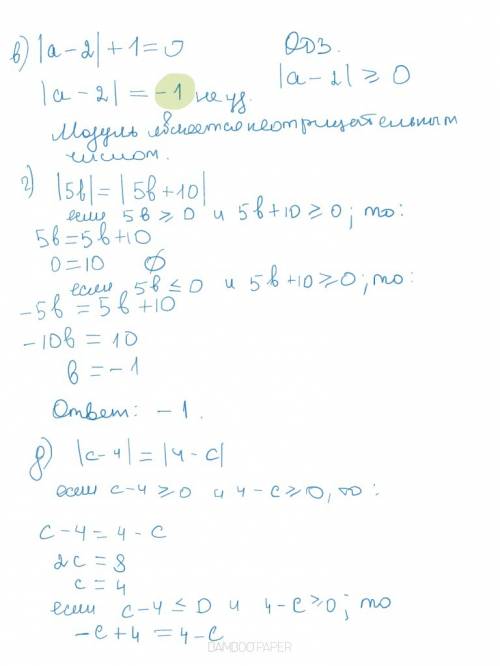 в) |a-2|+1=0 ОДЗ.
|a-2| = -1 не уд. |a-2| ≥ 0
Модуль является неотрицательным
числом.
г) |5b| = |5b+10|
если 5b ≥ 0 и 5b+10 ≥ 0; то:
5b=5b+10
0=10 ∅
если 5b ≤ 0 и 5b+10 ≥ 0; то:
-5b = 5b+10
-10b = 10
b = -1
Ответ: -1.
д) |c-4| = |4-c|
если c-4 ≥ 0 и 4-c ≥ 0, то:
c-4 = 4-c
2c = 8
c = 4
если c-4 ≤ 0 и 4-c ≥ 0; то
-c+4 = 4-c
BAMBOOPAPER